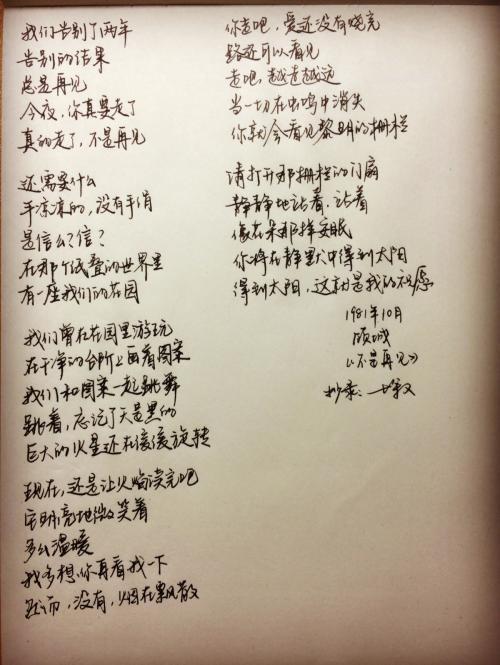 我们告别了两年
告别的结果
总是再见
今夜，你真要走了
真的走了，不是再见
还需要什么
手凉凉的，没有手绢
是信么？信？
在那个纸叠的世界里
有一座我们的花园
我们曾在花园里游玩
在干净的台阶上画着图案
我们和图案一起跳舞
跳着，忘记了天是黑的
巨大的火星还在缓缓旋转
现在，还是让火焰读完吧
它明亮地微笑着
多么温暖
我多想你再看我一下
然而，没有，烟在飘散
你走吧，爱还没有烧完
路还可以看见
走吧，越走越远
当一切在虫鸣中消失
你就会看见黎明的栅栏
请打开那栅栏的门扇
静静地站着，站着
像花朵那样安眠
你将在静默中得到太阳
得到太阳，这就是我的祝愿
1981年10月
顾城
《不是再见》
抄录：一